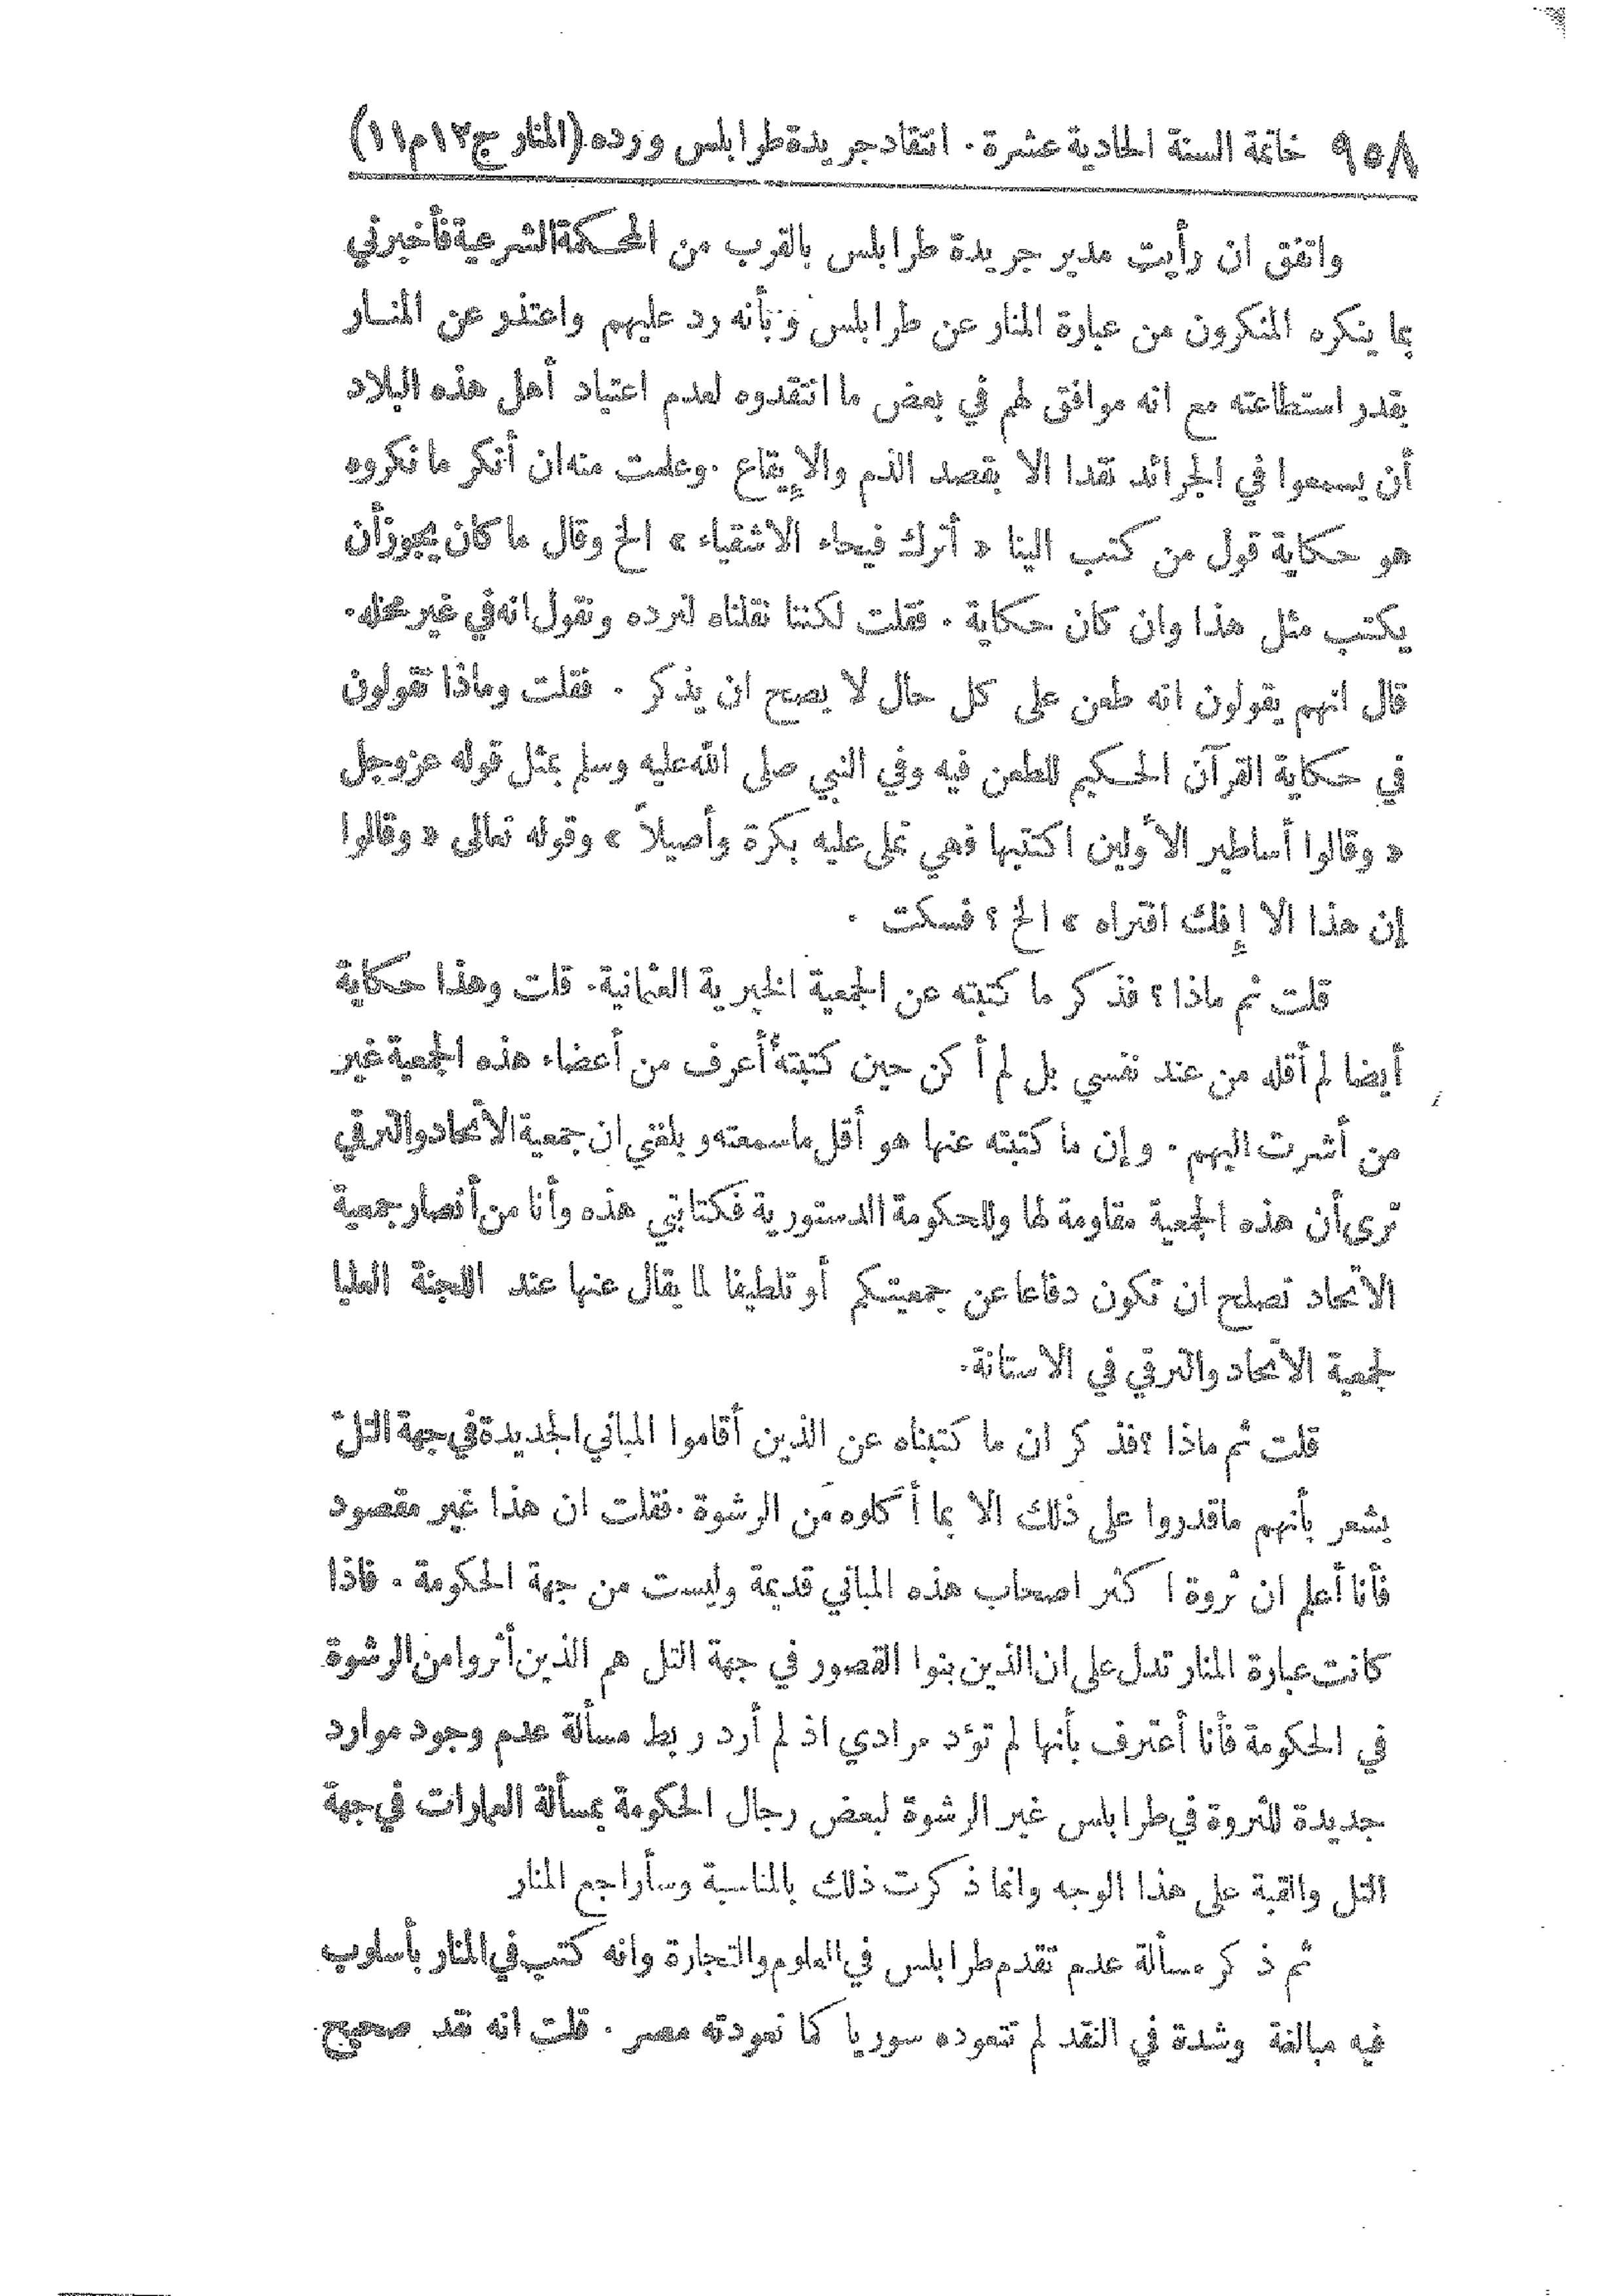 ٩٥٨ خاتمة السنة الحادية عشرة . انتقاد جريدة طرابلس ورده (المنار ج١٢م١١)
واتفق ان رأيت مدير جريدة طرابلس بالقرب من المحكمة الشرعية فأخبرني
بما ينكره المنكرون من عبارة المنار عن طرابلس وبأنه رد عليهم واعتذر عن المنار
بقدر استطاعته مع انه موافق لهم في بعض ما انتقدوه لعدم اعتياد أهل هذه البلاد
أن يسمعوا في الجرائد نقدا الا بقصد الذم والإيقاع . وعلمت منه ان أنكر ما نكروه
هو حكاية قول من كتب الينا « أترك فيحاء الاشقياء » الخ وقال ما كان يجوز أن
يكتب مثل هذا وان كان حكاية . فقلت لكننا نقلناه لنرده ونقول انه في غير محله .
قال انهم يقولون انه طعن على كل حال لا يصح ان يذكر . فقلت وماذا تقولون
في حكاية القرآن الحكيم للطعن فيه وفي النبي صلى الله عليه وسلم بمثل قوله عز وجل
« وقالوا أساطير الأولين اكتتبها فهي تملى عليه بكرة وأصيلاً » وقوله تعالى « وقالوا
إن هذا الا إفك افتراه » الخ ؟ فسكت .
قلت ثم ماذا ؟ فذكر ما كتبته عن الجمعية الخيرية العثمانية . قلت وهذا حكاية
أيضا لم أقله من عند نفسي بل لم أكن حين كتبته أعرف من أعضاء هذه الجمعية غير
من أشرت اليهم . وإن ما كتبته عنها هو أقل ما سمعته وبلغني ان جمعية الاتحاد والترقي
ترى أن هذه الجمعية مقاومة لها وللحكومة الدستورية فكتابتي هذه وأنا من أنصار جمعية
الاتحاد تصلح ان تكون دفاعا عن جمعيتكم أو تلطيفا لما يقال عنها عند اللجنة العليا
لجمعية الاتحاد والترقي في الاستانة .
قلت ثم ماذا ؟ فذكر ان ما كتبناه عن الذين أقاموا المباني الجديدة في جهة التلّ
يشعر بأنهم ما قدروا على ذلك الا بما أكلوه من الرشوة . فقلت ان هذا غير مقصود
فأنا أعلم ان ثروة اكثر اصحاب هذه المباني قديمة وليست من جهة الحكومة . فاذا
كانت عبارة المنار تدل على ان الذين بنوا القصور في جهة التل هم الذين أثروا من الرشوة
في الحكومة فأنا أعترف بأنها لم تؤد مرادي اذ لم أرد ربط مسألة عدم وجود موارد
جديدة للثروة في طرابلس غير الرشوة لبعض رجال الحكومة بمسألة العمارات في جهة
التل والقبة على هذا الوجه وانما ذكرت ذلك بالمناسبة وسأراجع المنار
ثم ذكر مسألة عدم تقدم طرابلس في العلوم والتجارة وانه كتب في المنار بأسلوب
فيه مبالغة وشدة في النقد لم تتعوده سوريا كما تعودته مصر . قلت انه نقد صحيح